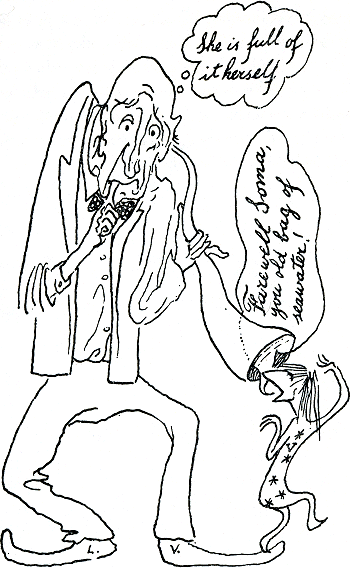 She is full of
it herself.
Farewell Soma,
you old bag of
seawater!
L. V.